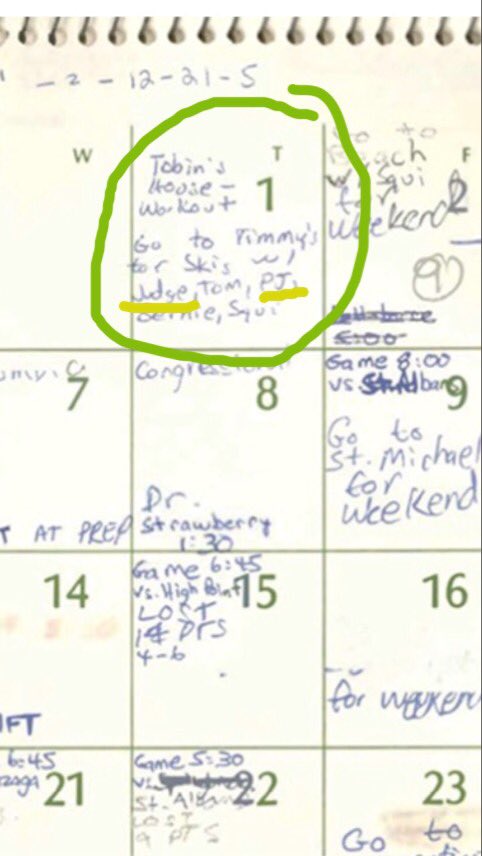 - 2 - 12-21-5
W
T
F
1
Tobin's
House -
Workout
Go to Timmy's
for Skis w/
Judge, Tom, PJ,
Bernie, Squi
2
Go to
Beach
w/ Squi
for
weekend
9
7
8
Congressional
Dr.
Strawberry
1:30
T AT PREP
9
Game 8:00
vs St. Albans
Go to
St. Michael
for
weekend
14
IFT
15
Game 6:45
vs. High Point
LOST
PTS
4-6
16
for weekend
21
6:45
zaga
22
Game 5:30
vs.
St. Albans
LOST
9 PTS
23
Go to